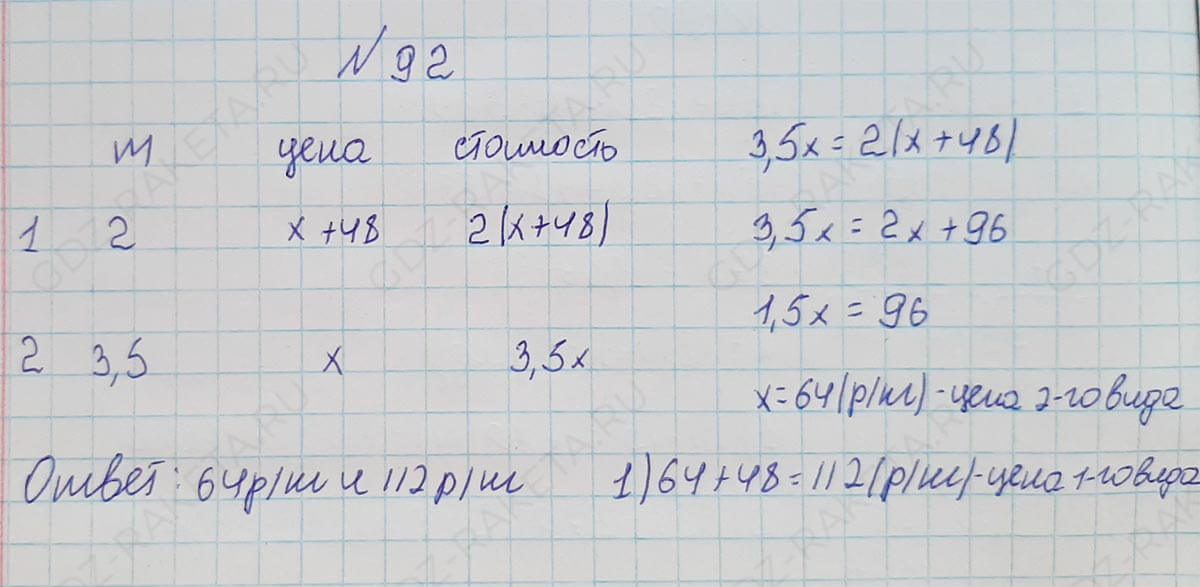 № 92
m цена стоимость 3,5x = 2(x+48)
1 2 x+48 2(x+48) 3,5x = 2x+96
1,5x = 96
2 3,5 x 3,5x
x=64(р/кг)-цена 2-го вида
Ответ: 64р/кг и 112р/кг 1) 64+48=112(р/кг)-цена 1-го вида
GDZ-RAKETA.RU